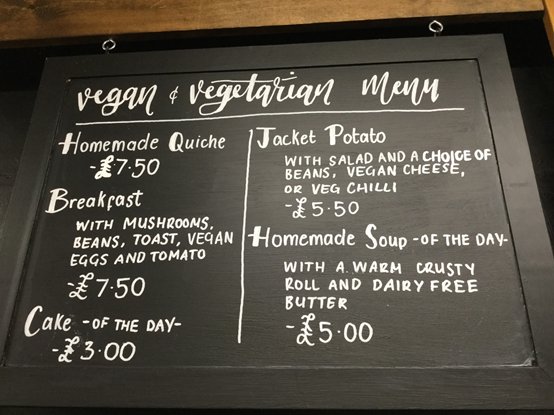 vegan & vegetarian Menu
Homemade Quiche
-£7.50
Breakfast
WITH MUSHROOMS,
BEANS, TOAST, VEGAN
EGGS AND TOMATO
-£7.50
Cake -OF THE DAY-
-£3.00
Jacket Potato
WITH SALAD AND A CHOICE OF
BEANS, VEGAN CHEESE,
OR VEG CHILLI
-£5.50
Homemade Soup -OF THE DAY-
WITH A WARM CRUSTY
ROLL AND DAIRY FREE
BUTTER
-£5.00